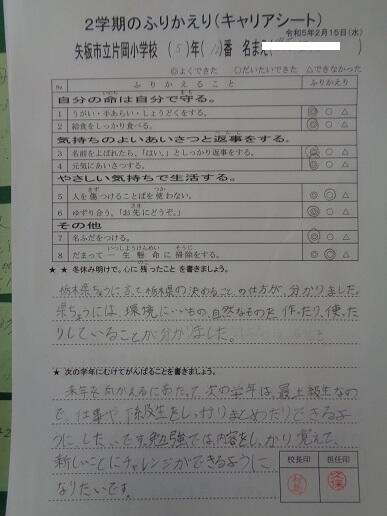 2学期のふりかえり(キャリアシート)
令和5年2月15日(水)
矢板市立片岡小学校 (5)年( )番 名まえ(
◎よくできた ○だいたいできた △できなかった
№ ふりかえること ふりかえり
自分の命は自分で守る。
1 うがい・手あらい・しょうどくをする。 ◎ ○ △
2 給食をしっかり食べる。 ◎ ○ △
気持ちのよいあいさつと返事をする。
3 名前をよばれたら、「はい。」としっかり返事をする。 ◎ ○ △
4 元気にあいさつする。 ◎ ○ △
やさしい気持ちで生活する。
5 人を傷つけることばを使わない。 ◎ ○ △
6 ゆずり合う。「お先にどうぞ。」 ◎ ○ △
その他
7 名ふだをつける。 ◎ ○ △
8 だまって一生懸命に掃除をする。 ◎ ○ △
★ ★ 冬休み明けで。心に残ったことを書きましょう。
栃木県ちょうに行って栃木県の決めることの仕方が、分かりました。
県ちょうには、環境にいいもの、自然なものを、作ったり、使った
りしていることが分かりました。
★ 次の学年にむけてがんばることを書きましょう。
来年をむかえるにあたって、次の学年は、最上級生なの
で、仕事や下級生をしっかりまとめたりできるよ
うに、したいです。勉強では内容をしっかり覚えて、
新しいことにチャレンジができるように
なりたいです。
校長印 担任印